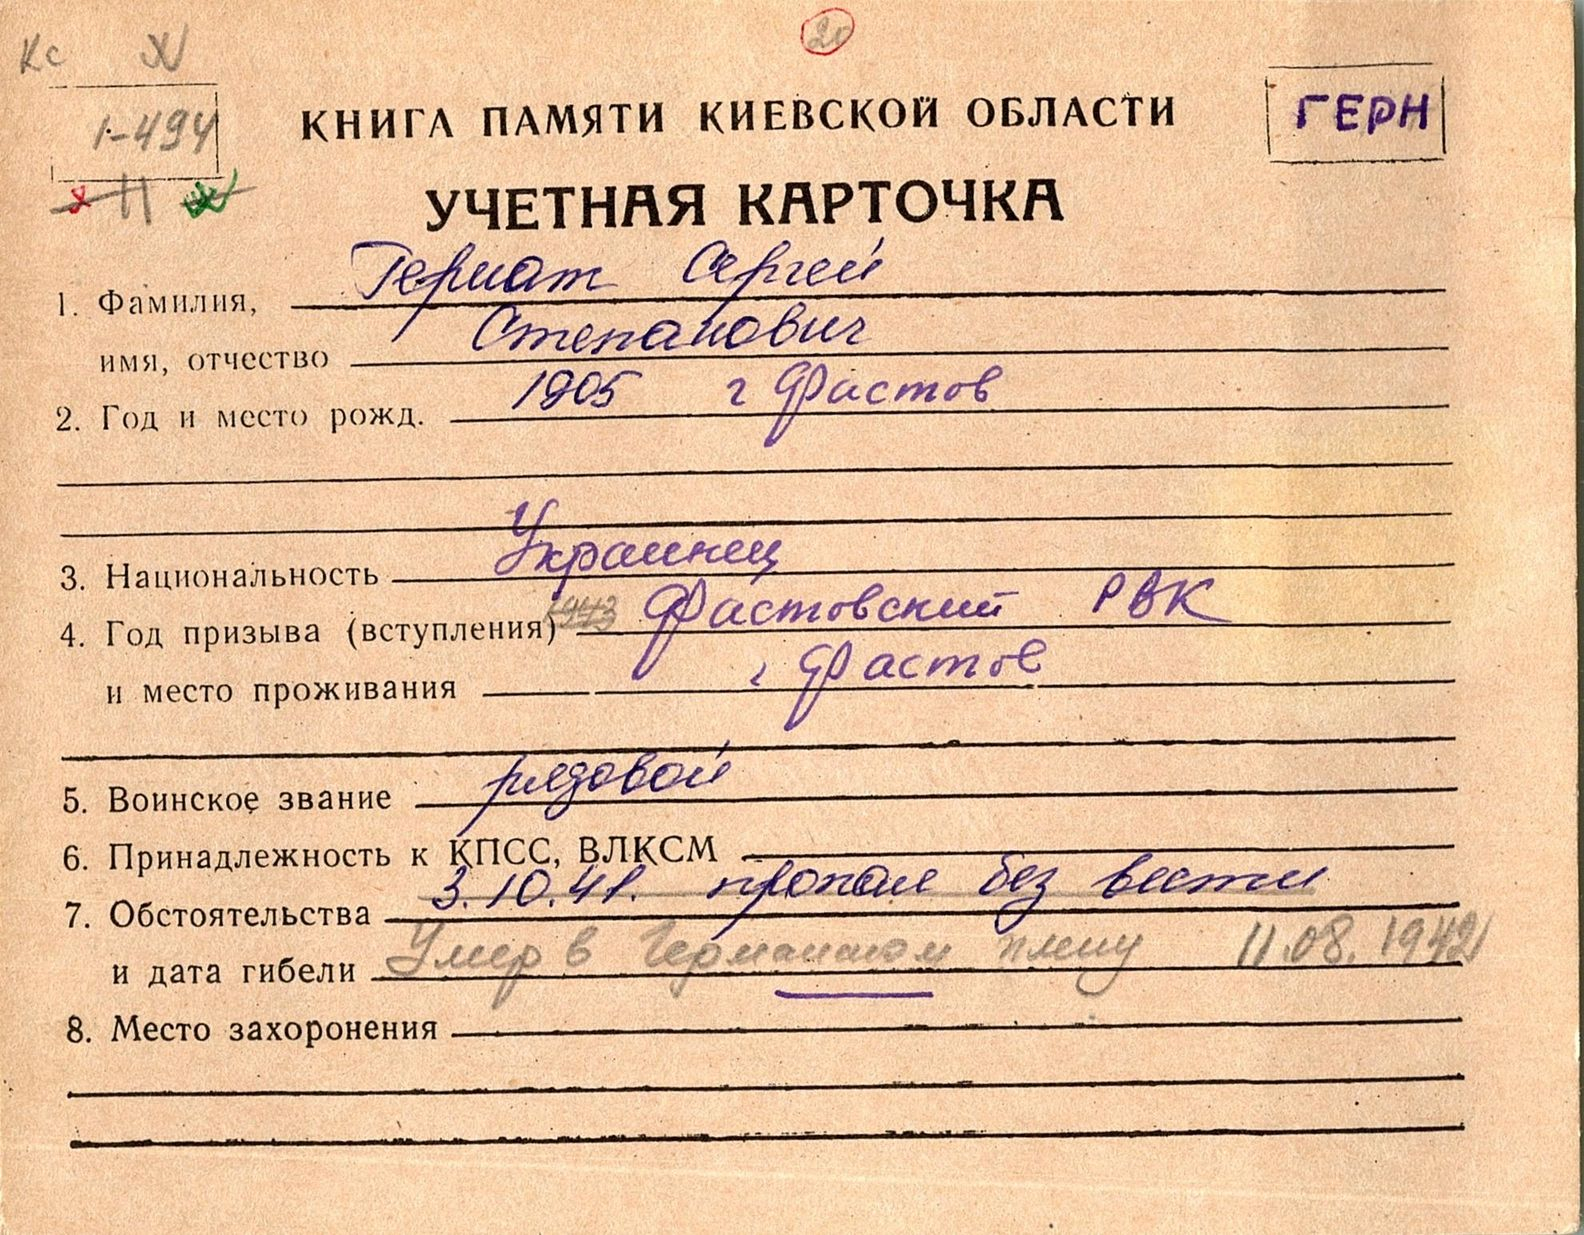 Кс
20
1-494
КНИГА ПАМЯТИ КИЕВСКОЙ ОБЛАСТИ
ГЕРН
11
УЧЕТНАЯ КАРТОЧКА
1. Фамилия, Гернат Сергей
имя, отчество Степанович
2. Год и место рожд. 1905 г Фастов
3. Национальность Украинец
4. Год призыва (вступления) 1943 Фастовский РВК
и место проживания г Фастов
5. Воинское звание рядовой
6. Принадлежность к КПСС, ВЛКСМ
7. Обстоятельства 3.10.41. пропал без вести
и дата гибели Умер в Германском плену 11.08.1942
8. Место захоронения